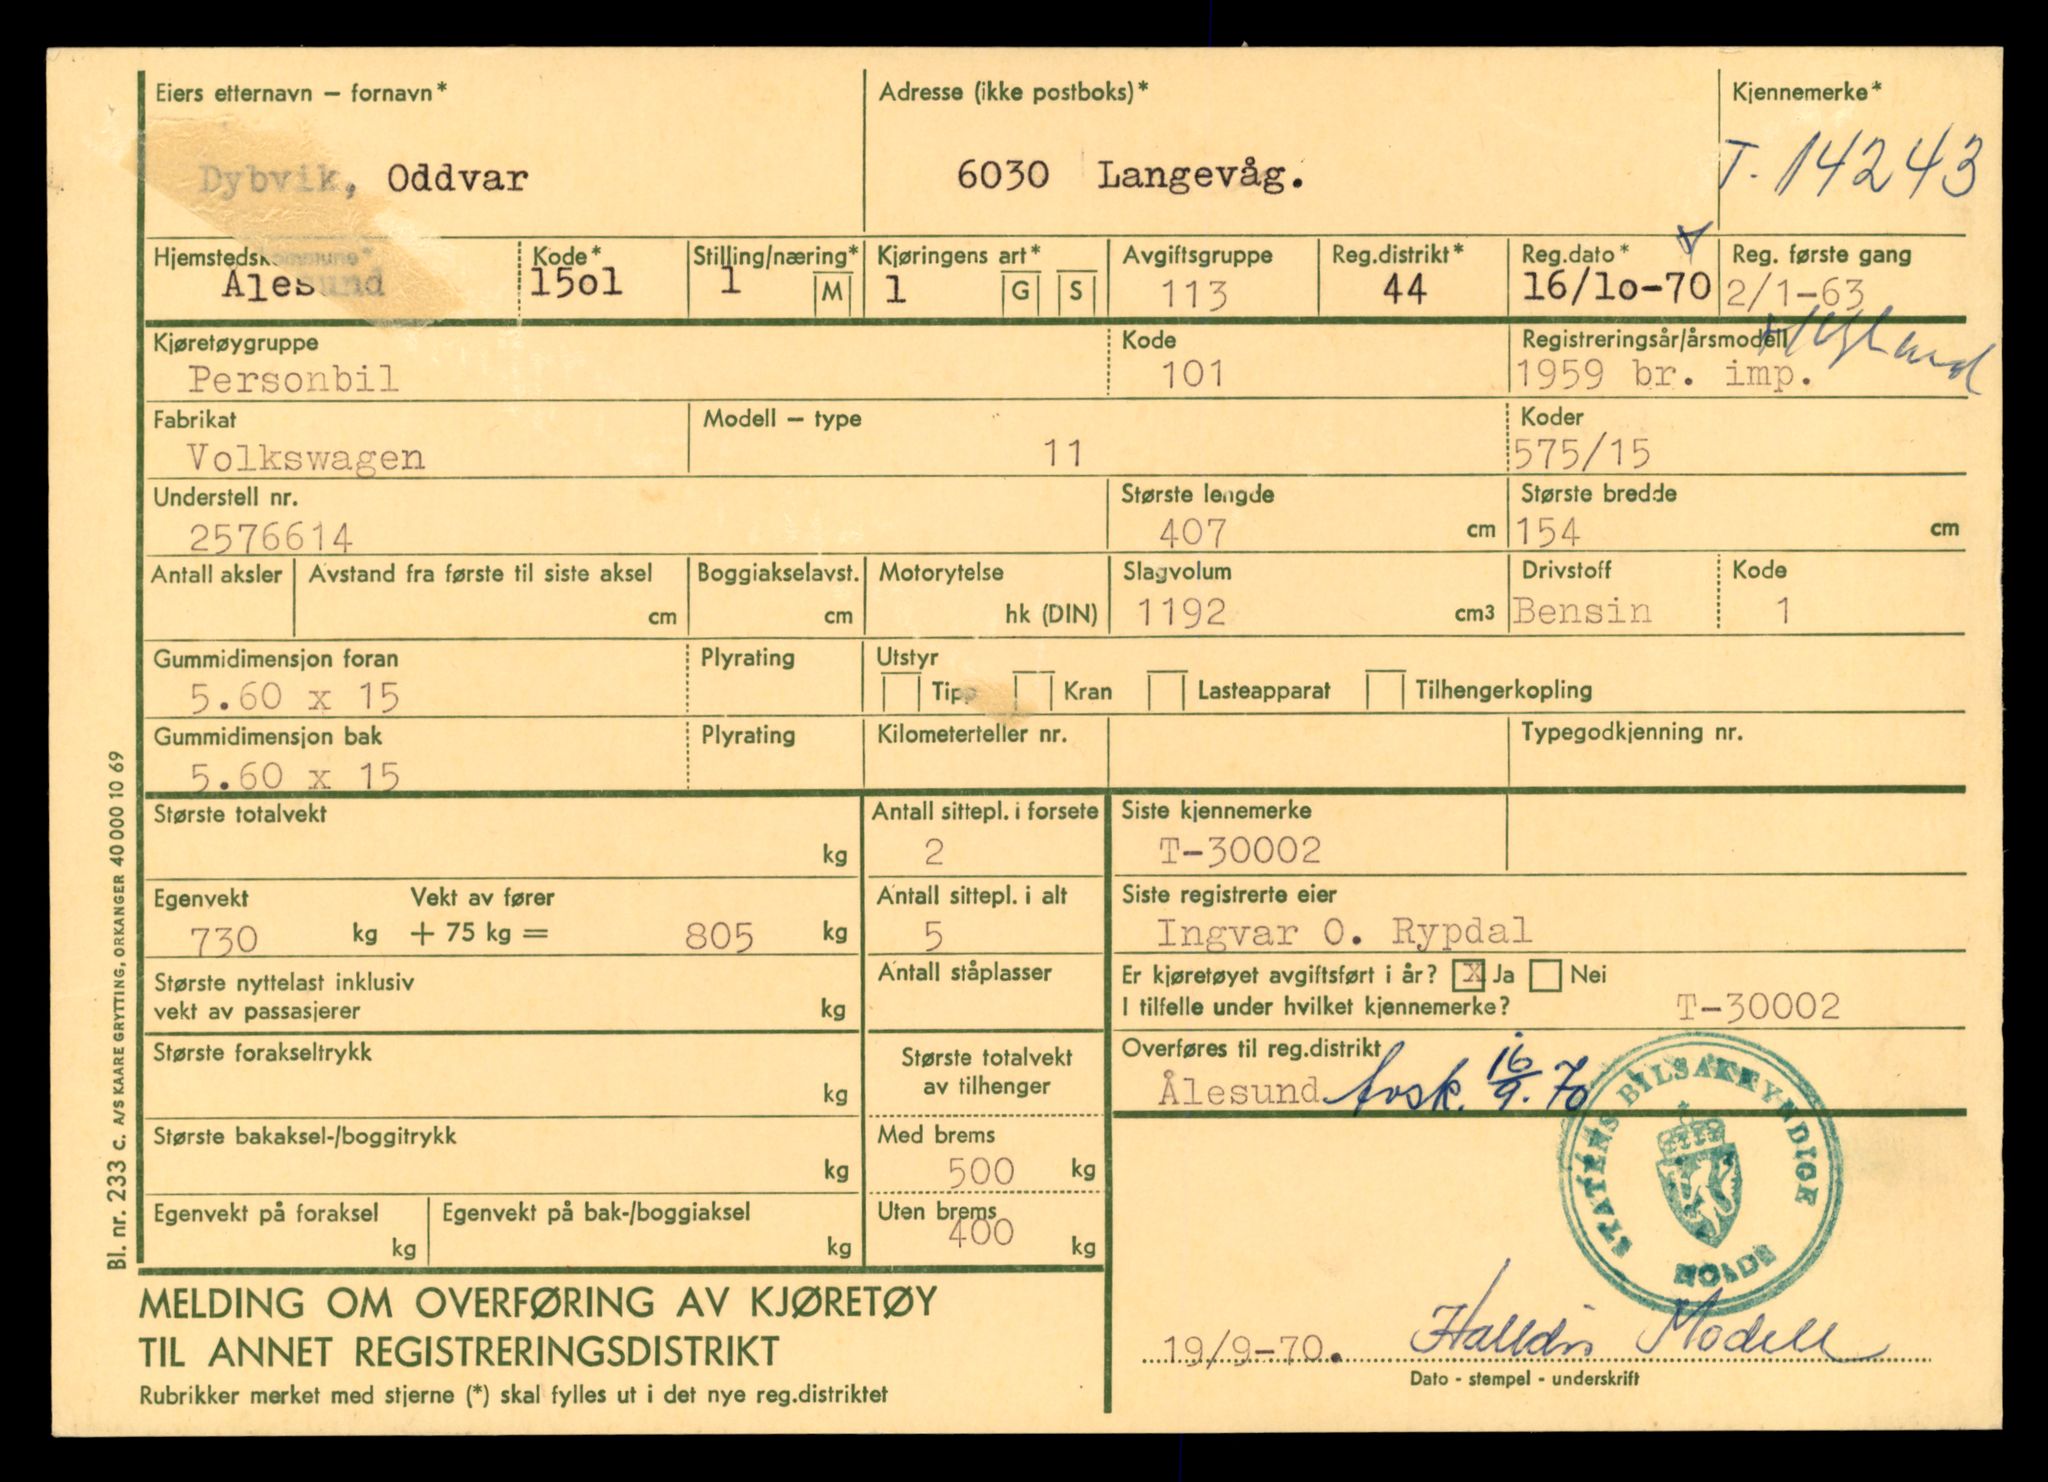 Eiers etternavn – fornavn*
Dybvik, Oddvar
Adresse (ikke postboks)*
6030 Langevåg.
Kjennemerke*
T. 14243
Hjemstedskommune*
Ålesund
Kode*
15o1
Stilling/næring*
1 M
Kjøringens art*
1 G S
Avgiftsgruppe
113
Reg.distrikt*
44
Reg.dato*
16/1o-70
Reg. første gang
2/1-63
Kjøretøygruppe
Personbil
Kode
101
Registreringsår/årsmodell
1959 br. imp.
Fabrikat
Volkswagen
Modell – type
11
Koder
575/15
Understell nr.
2576614
Største lengde
407 cm
Største bredde
154 cm
Antall aksler
Avstand fra første til siste aksel
cm
Boggiakselavst.
cm
Motorytelse
hk (DIN)
Slagvolum
1192 cm3
Drivstoff
Bensin
Kode
1
Gummidimensjon foran
5.60 x 15
Plyrating
Utstyr
Tipp Kran Lasteapparat Tilhengerkopling
Gummidimensjon bak
5.60 x 15
Plyrating
Kilometerteller nr.
Typegodkjenning nr.
Største totalvekt
kg
Antall sittepl. i forsete
2
Siste kjennemerke
T-30002
Egenvekt
730 kg
Vekt av fører
+ 75 kg = 805 kg
Antall sittepl. i alt
5
Siste registrerte eier
Ingvar O. Rypdal
Største nyttelast inklusiv
vekt av passasjerer kg
Antall ståplasser
Er kjøretøyet avgiftsført i år? X Ja Nei
I tilfelle under hvilket kjennemerke? T-30002
Største forakseltrykk
kg
Største totalvekt
av tilhenger
Overføres til reg.distrikt
Ålesund Avsk. 16/9.70
Største bakaksel-/boggitrykk
kg
Med brems
500 kg
Egenvekt på foraksel
kg
Egenvekt på bak-/boggiaksel
kg
Uten brems
400 kg
STATENS BILSAKKYNDIGE
MOLDE
MELDING OM OVERFØRING AV KJØRETØY
TIL ANNET REGISTRERINGSDISTRIKT
Rubrikker merket med stjerne (*) skal fylles ut i det nye reg.distriktet
19/9-70. Halldis Modell
Dato - stempel - underskrift
Bl. nr. 233 C. A/S KAARE GRYTTING, ORKANGER 40 000 10 69